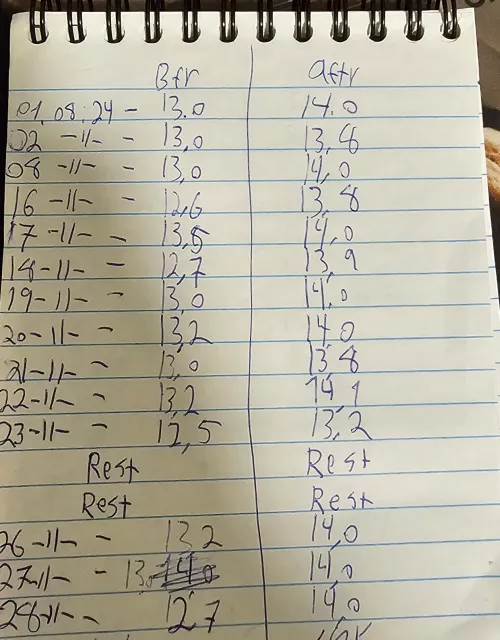 Bfr aftr
01.08.24 - 13.0 14.0
02 -11- - 13,0 13,8
08 -11- - 13,0 14,0
16 -11- - 12,6 13,8
17 -11- - 13,5 14,0
18-11- - 12,7 13,9
19-11- - 13,0 14,0
20-11- - 13,2 14,0
21-11- - 13,0 13,8
22-11- - 13,2 14,1
23-11- - 12,5 13,2
Rest Rest
Rest Rest
26-11- - 13,2 14,0
27-11- - 13,0 14,0
28-11- - 12,7 14,0